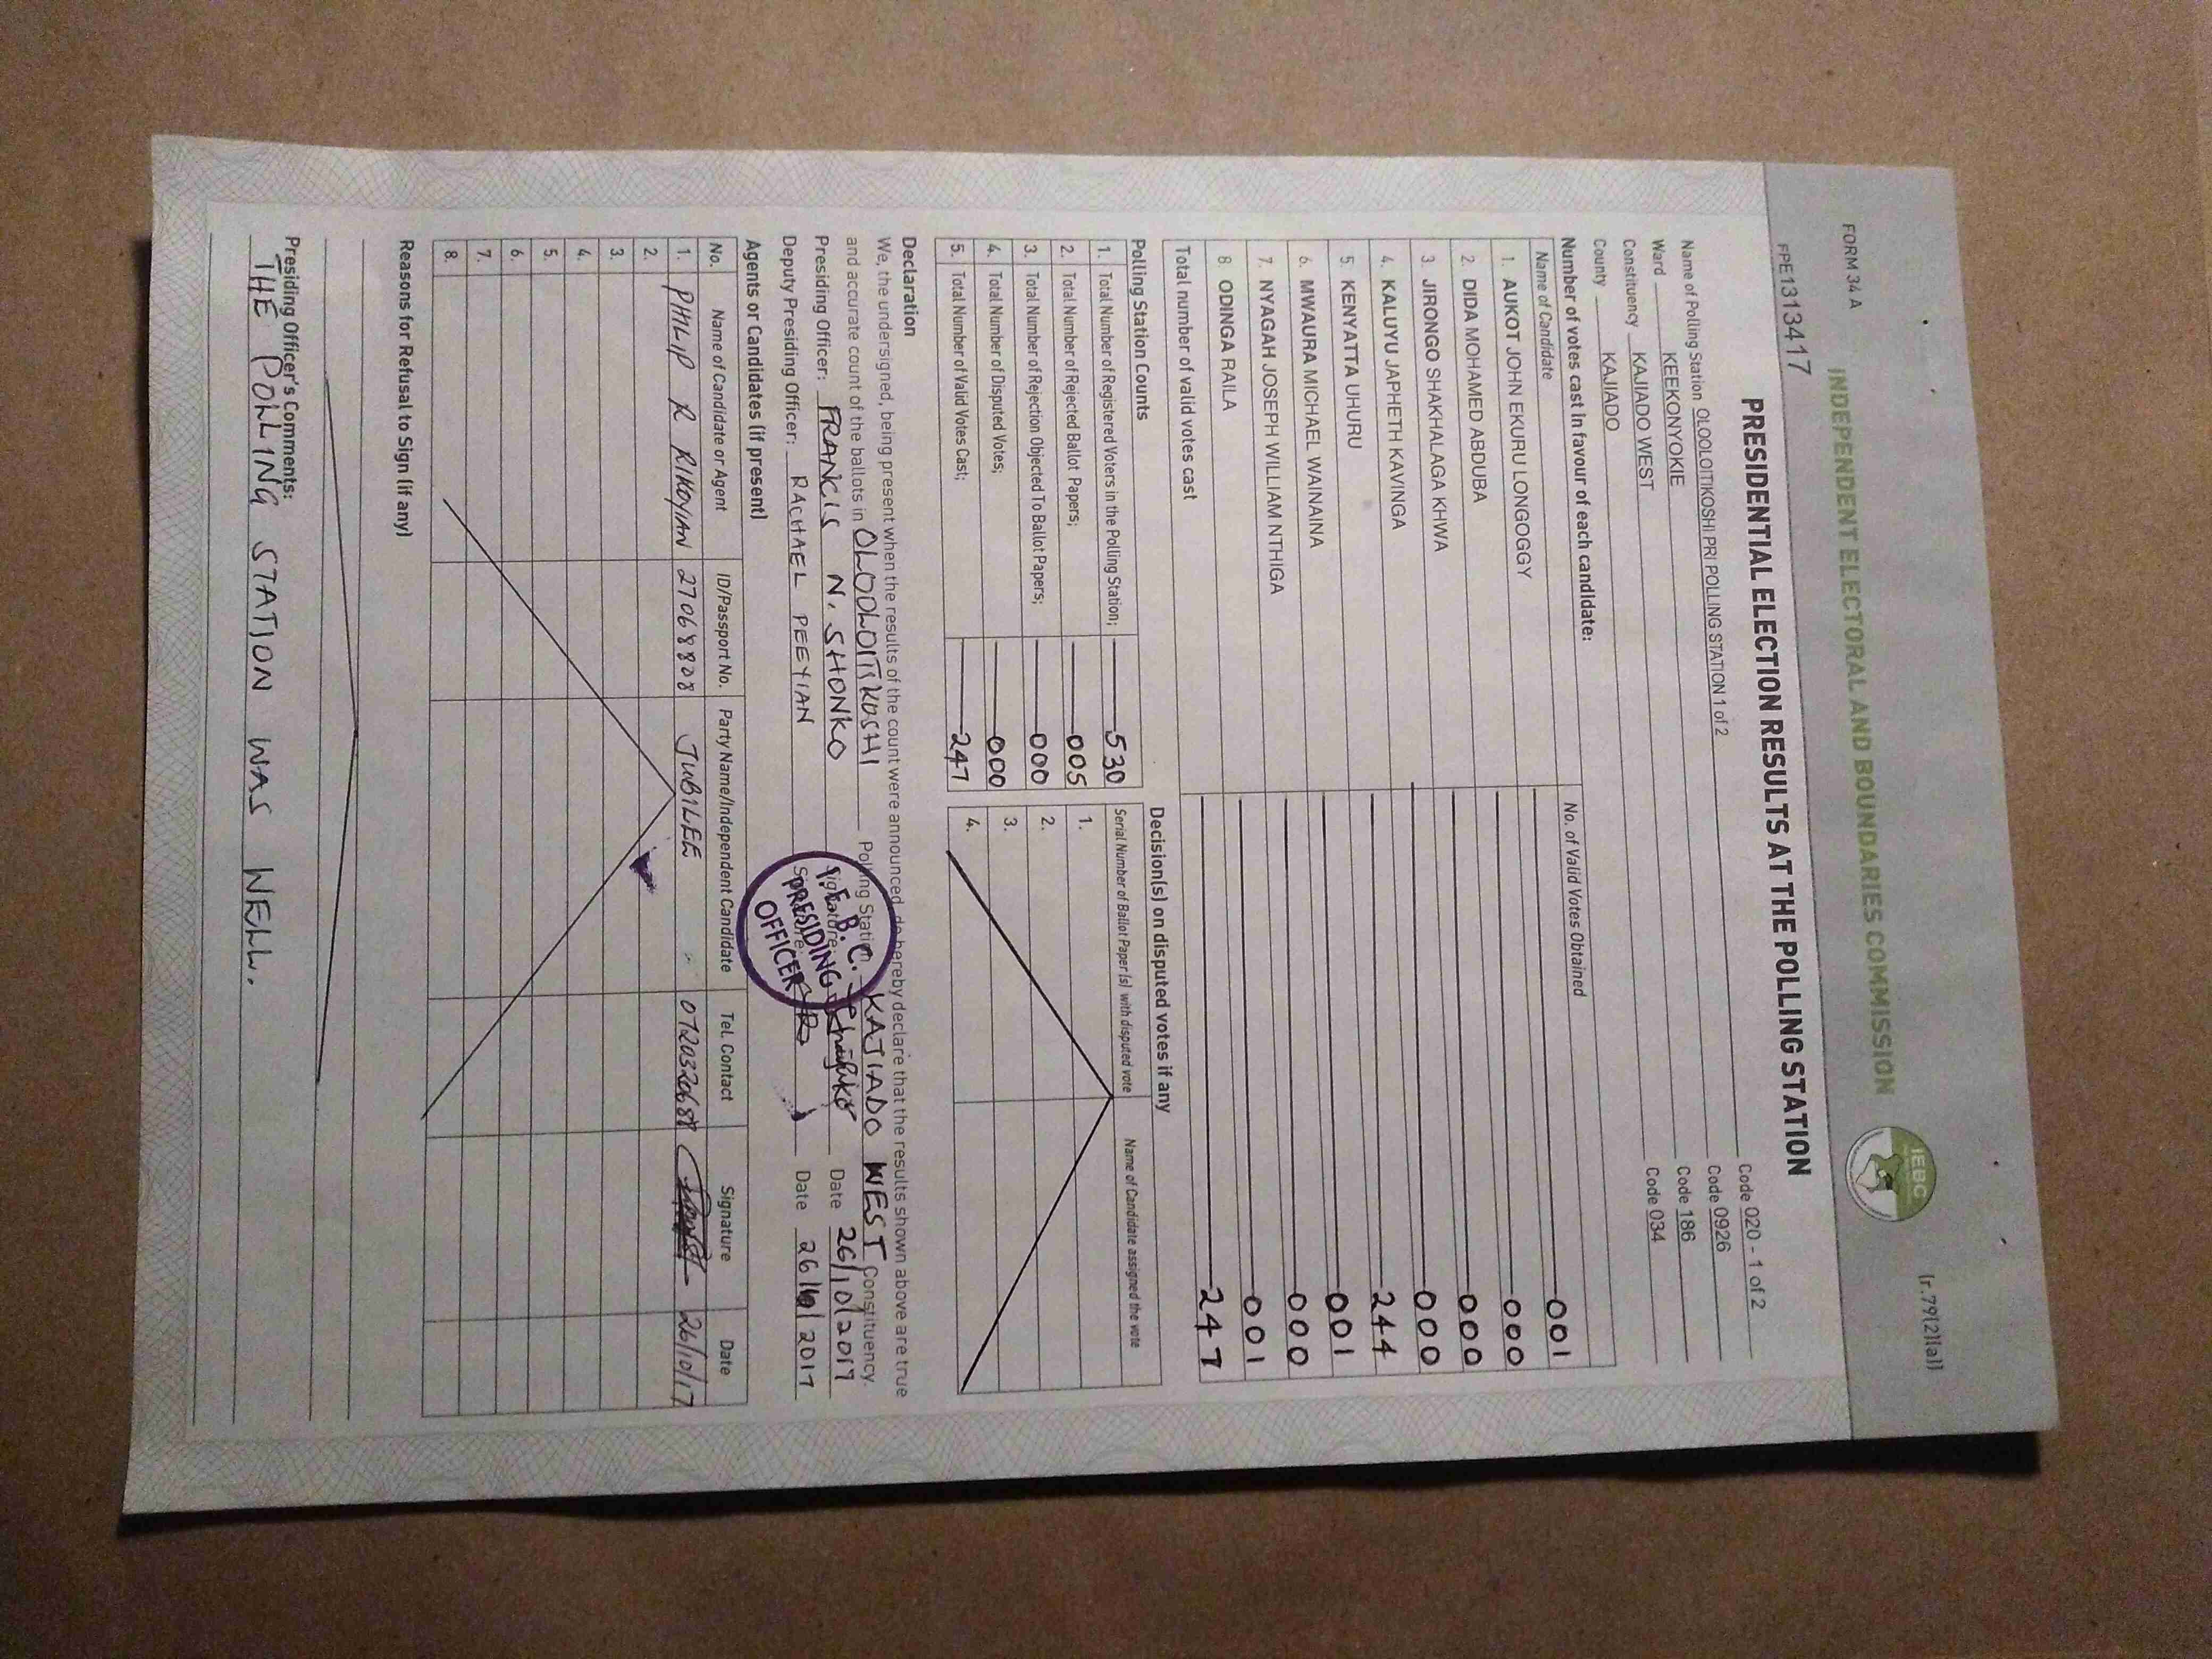 FORM 34 A
(r.79(2)(a))
INDEPENDENT ELECTORAL AND BOUNDARIES COMMISSION
IEBC
PPE1313417
PRESIDENTIAL ELECTION RESULTS AT THE POLLING STATION
Name of Polling Station OLOOLOITIKOSHI PRI POLLING STATION 1 of 2 Code 020 - 1 of 2
Ward KEEKONYOKIE Code 0926
Constituency KAJIADO WEST Code 186
County KAJIADO Code 034
Number of votes cast in favour of each candidate:
Name of Candidate No. of Valid Votes Obtained
1. AUKOT JOHN EKURU LONGOGGY 001
2. DIDA MOHAMED ABDUBA 000
3. JIRONGO SHAKHALAGA KHWA 000
4. KALUYU JAPHETH KAVINGA 000
5. KENYATTA UHURU 244
6. MWAURA MICHAEL WAINAINA 001
7. NYAGAH JOSEPH WILLIAM NTHIGA 000
8. ODINGA RAILA 001
Total number of valid votes cast 247
Polling Station Counts
1. Total Number of Registered Voters in the Polling Station; 530
2. Total Number of Rejected Ballot Papers; 005
3. Total Number of Rejection Objected To Ballot Papers; 000
4. Total Number of Disputed Votes; 000
5. Total Number of Valid Votes Cast; 247
Decision(s) on disputed votes if any
Serial Number of Ballot Paper (s) with disputed vote Name of Candidate assigned the vote
1.
2.
3.
4.
Declaration
We, the undersigned, being present when the results of the count were announced, do hereby declare that the results shown above are true
and accurate count of the ballots in OLOOLOITIKOSHI Polling Station KAJIADO WEST Constituency.
Presiding Officer: FRANCIS N. SHONKO Signature Date 26/10/2017
Deputy Presiding Officer: RACHAEL PEEYIAN Signature Date 26/10/2017
I.E.B.C.
PRESIDING
OFFICER
Agents or Candidates (if present)
No. Name of Candidate or Agent ID/Passport No. Party Name/Independent Candidate Tel. Contact Signature Date
1. PHILIP R RIKOYIAN 27068828 JUBILEE 0720320688 26/10/17
2.
3.
4.
5.
6.
7.
8.
Reasons for Refusal to Sign (if any)
Presiding Officer's Comments:
THE POLLING STATION WAS WELL.